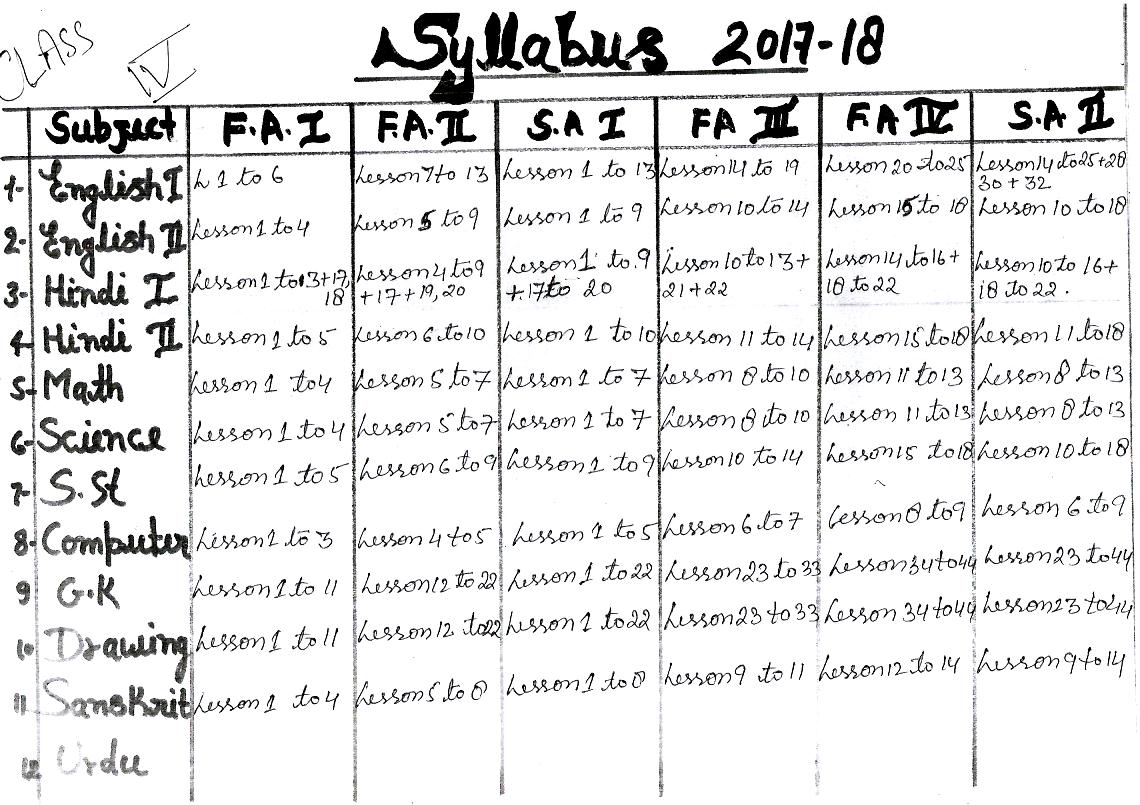 CLASS IV
Syllabus 2017-18
Subject F.A. I F.A. II S.A I FA III F.A IV S.A II
1- English I L 1 to 6 Lesson 7 to 13 Lesson 1 to 13 Lesson 14 to 19 Lesson 20 to 25 Lesson 14 to 25+28
30 + 32
2- English II Lesson 1 to 4 Lesson 5 to 9 Lesson 1 to 9 Lesson 10 to 14 Lesson 15 to 18 Lesson 10 to 18
3- Hindi I Lesson 1 to 13+17, Lesson 4 to 9 Lesson 1 to 9 Lesson 10 to 13 + Lesson 14 to 16 + Lesson 10 to 16 +
18 + 17 + 19, 20 + 17 to 20 21 + 22 18 to 22 18 to 22.
4- Hindi II Lesson 1 to 5 Lesson 6 to 10 Lesson 1 to 10 Lesson 11 to 14 Lesson 15 to 18 Lesson 11 to 18
5- Math Lesson 1 to 4 Lesson 5 to 7 Lesson 1 to 7 Lesson 8 to 10 Lesson 11 to 13 Lesson 8 to 13
6- Science Lesson 1 to 4 Lesson 5 to 7 Lesson 1 to 7 Lesson 8 to 10 Lesson 11 to 13 Lesson 8 to 13
7- S.St Lesson 1 to 5 Lesson 6 to 9 Lesson 1 to 9 Lesson 10 to 14 Lesson 15 to 18 Lesson 10 to 18
8- Computer Lesson 1 to 3 Lesson 4 to 5 Lesson 1 to 5 Lesson 6 to 7 Lesson 8 to 9 Lesson 6 to 9
9 G.K Lesson 1 to 11 Lesson 12 to 22 Lesson 1 to 22 Lesson 23 to 33 Lesson 34 to 44 Lesson 23 to 44
10 Drawing Lesson 1 to 11 Lesson 12 to 22 Lesson 1 to 22 Lesson 23 to 33 Lesson 34 to 44 Lesson 23 to 44
11 Sanskrit Lesson 1 to 4 Lesson 5 to 8 Lesson 1 to 8 Lesson 9 to 11 Lesson 12 to 14 Lesson 9 to 14
12 Urdu